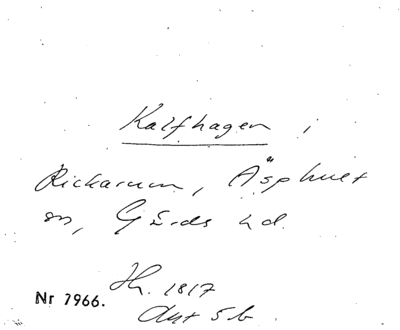 Kalfhagen i
Rickarum, Äsphult
sn, Gärds hd.
Nr 7966.
Hr. 1817
Akt 5 b